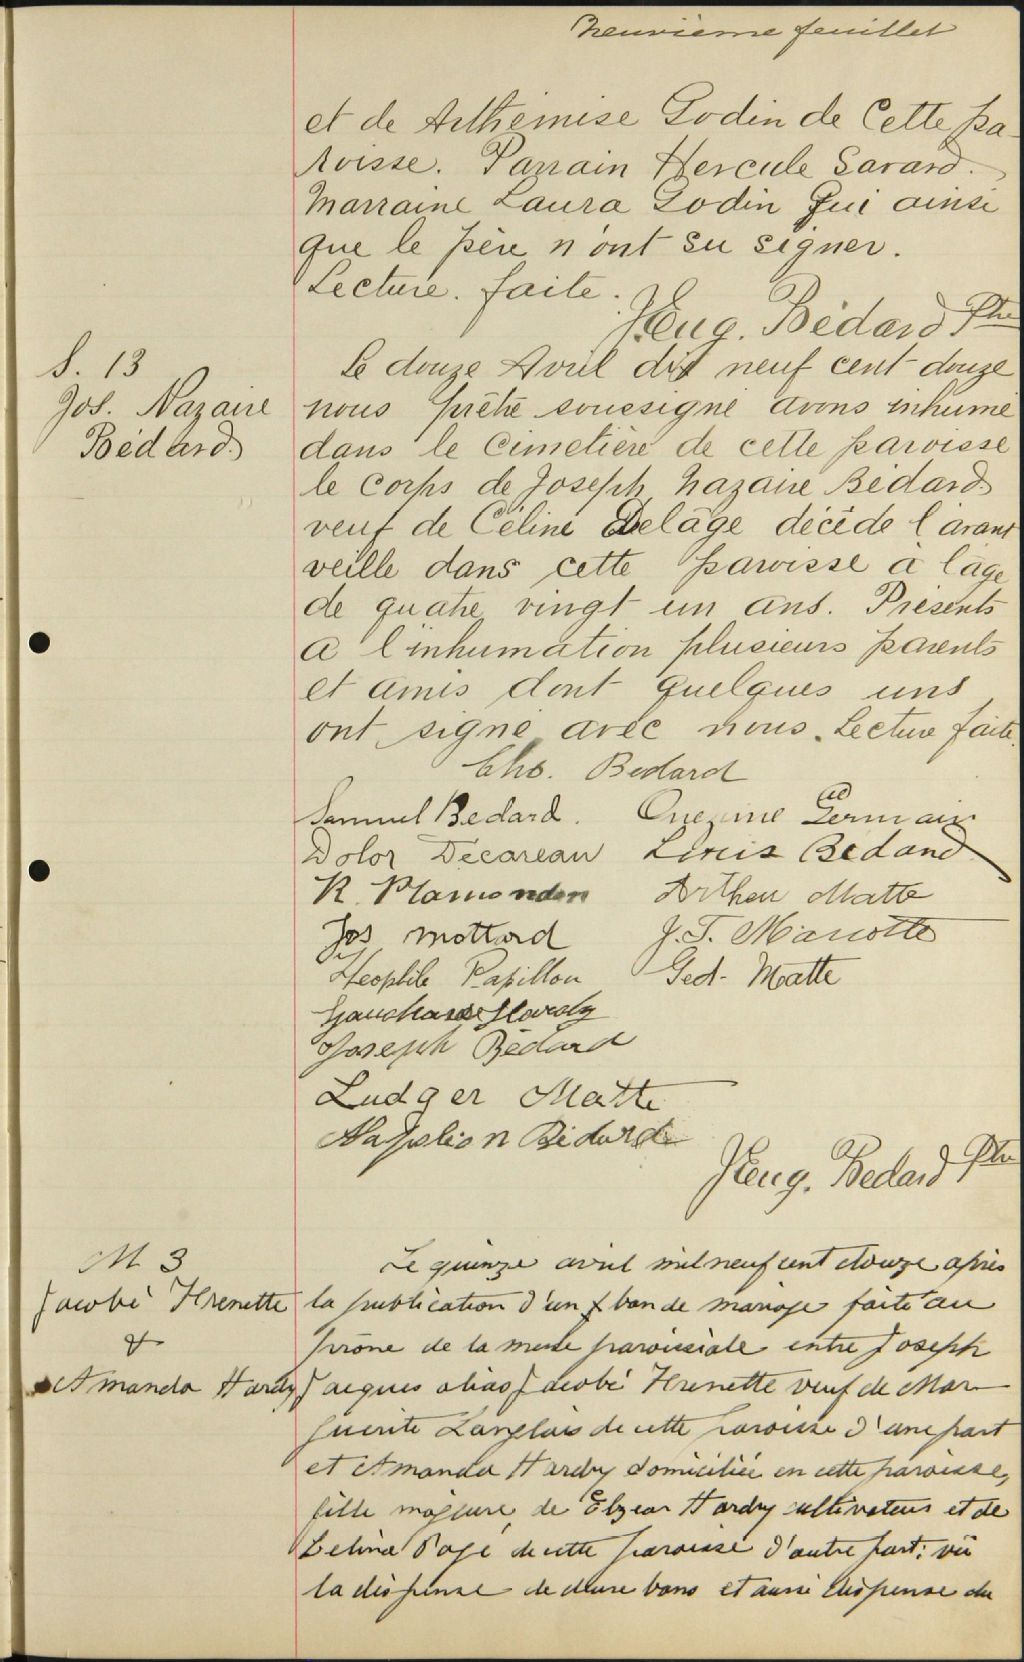 neuvième feuillet
et de Arthémise Godin de Cette pa-
roisse. Parrain Hercule Savard.
Marraine Laura Godin Qui ainsi
que le père n'ont su signer.
Lecture. faite.
J. Eug. Bédard Ptre
S. 13
Jos. Nazaire
Bédard.
Le douze Avril dix neuf cent douze
nous prêtre soussigné avons inhumé
dans le cimetière de cette paroisse
le corps de Joseph Nazaire Bédard
veuf de Céline Delâge décédé l'avant
veille dans cette paroisse à l'âge
de quatre vingt un ans. Présents
a l'inhumation plusieurs parents
et amis dont quelques uns
ont signé avec nous. Lecture faite.
Chs. Bedard
Samuel Bedard. Onezime Germain
Dolor Décareau Louis Bedard
R. Plamondon Arthur Matte
Jos Mottard J. T. Marcotte
Théophile Papillon Ged. Matte
Hardy
Joseph Bédard
Ludger Matte
Napoléon Bédard
J. Eug. Bedard Ptre
M 3
Jacobé Frenette
&
Amanda Hardy
Le quinze avril mil neuf cent douze après
la publication d'un ban de mariage faite au
prône de la messe paroissiale entre Joseph
Jacques alias Jacobé Frenette veuf de Mar-
guerite Langlais de cette paroisse d'une part
et Amanda Hardy domiciliée en cette paroisse,
fille majeure de Elzear Hardy cultivateur et de
Celina Pagé de cette paroisse d'autre part; vû
la dispense de deux bans et aussi dispense du